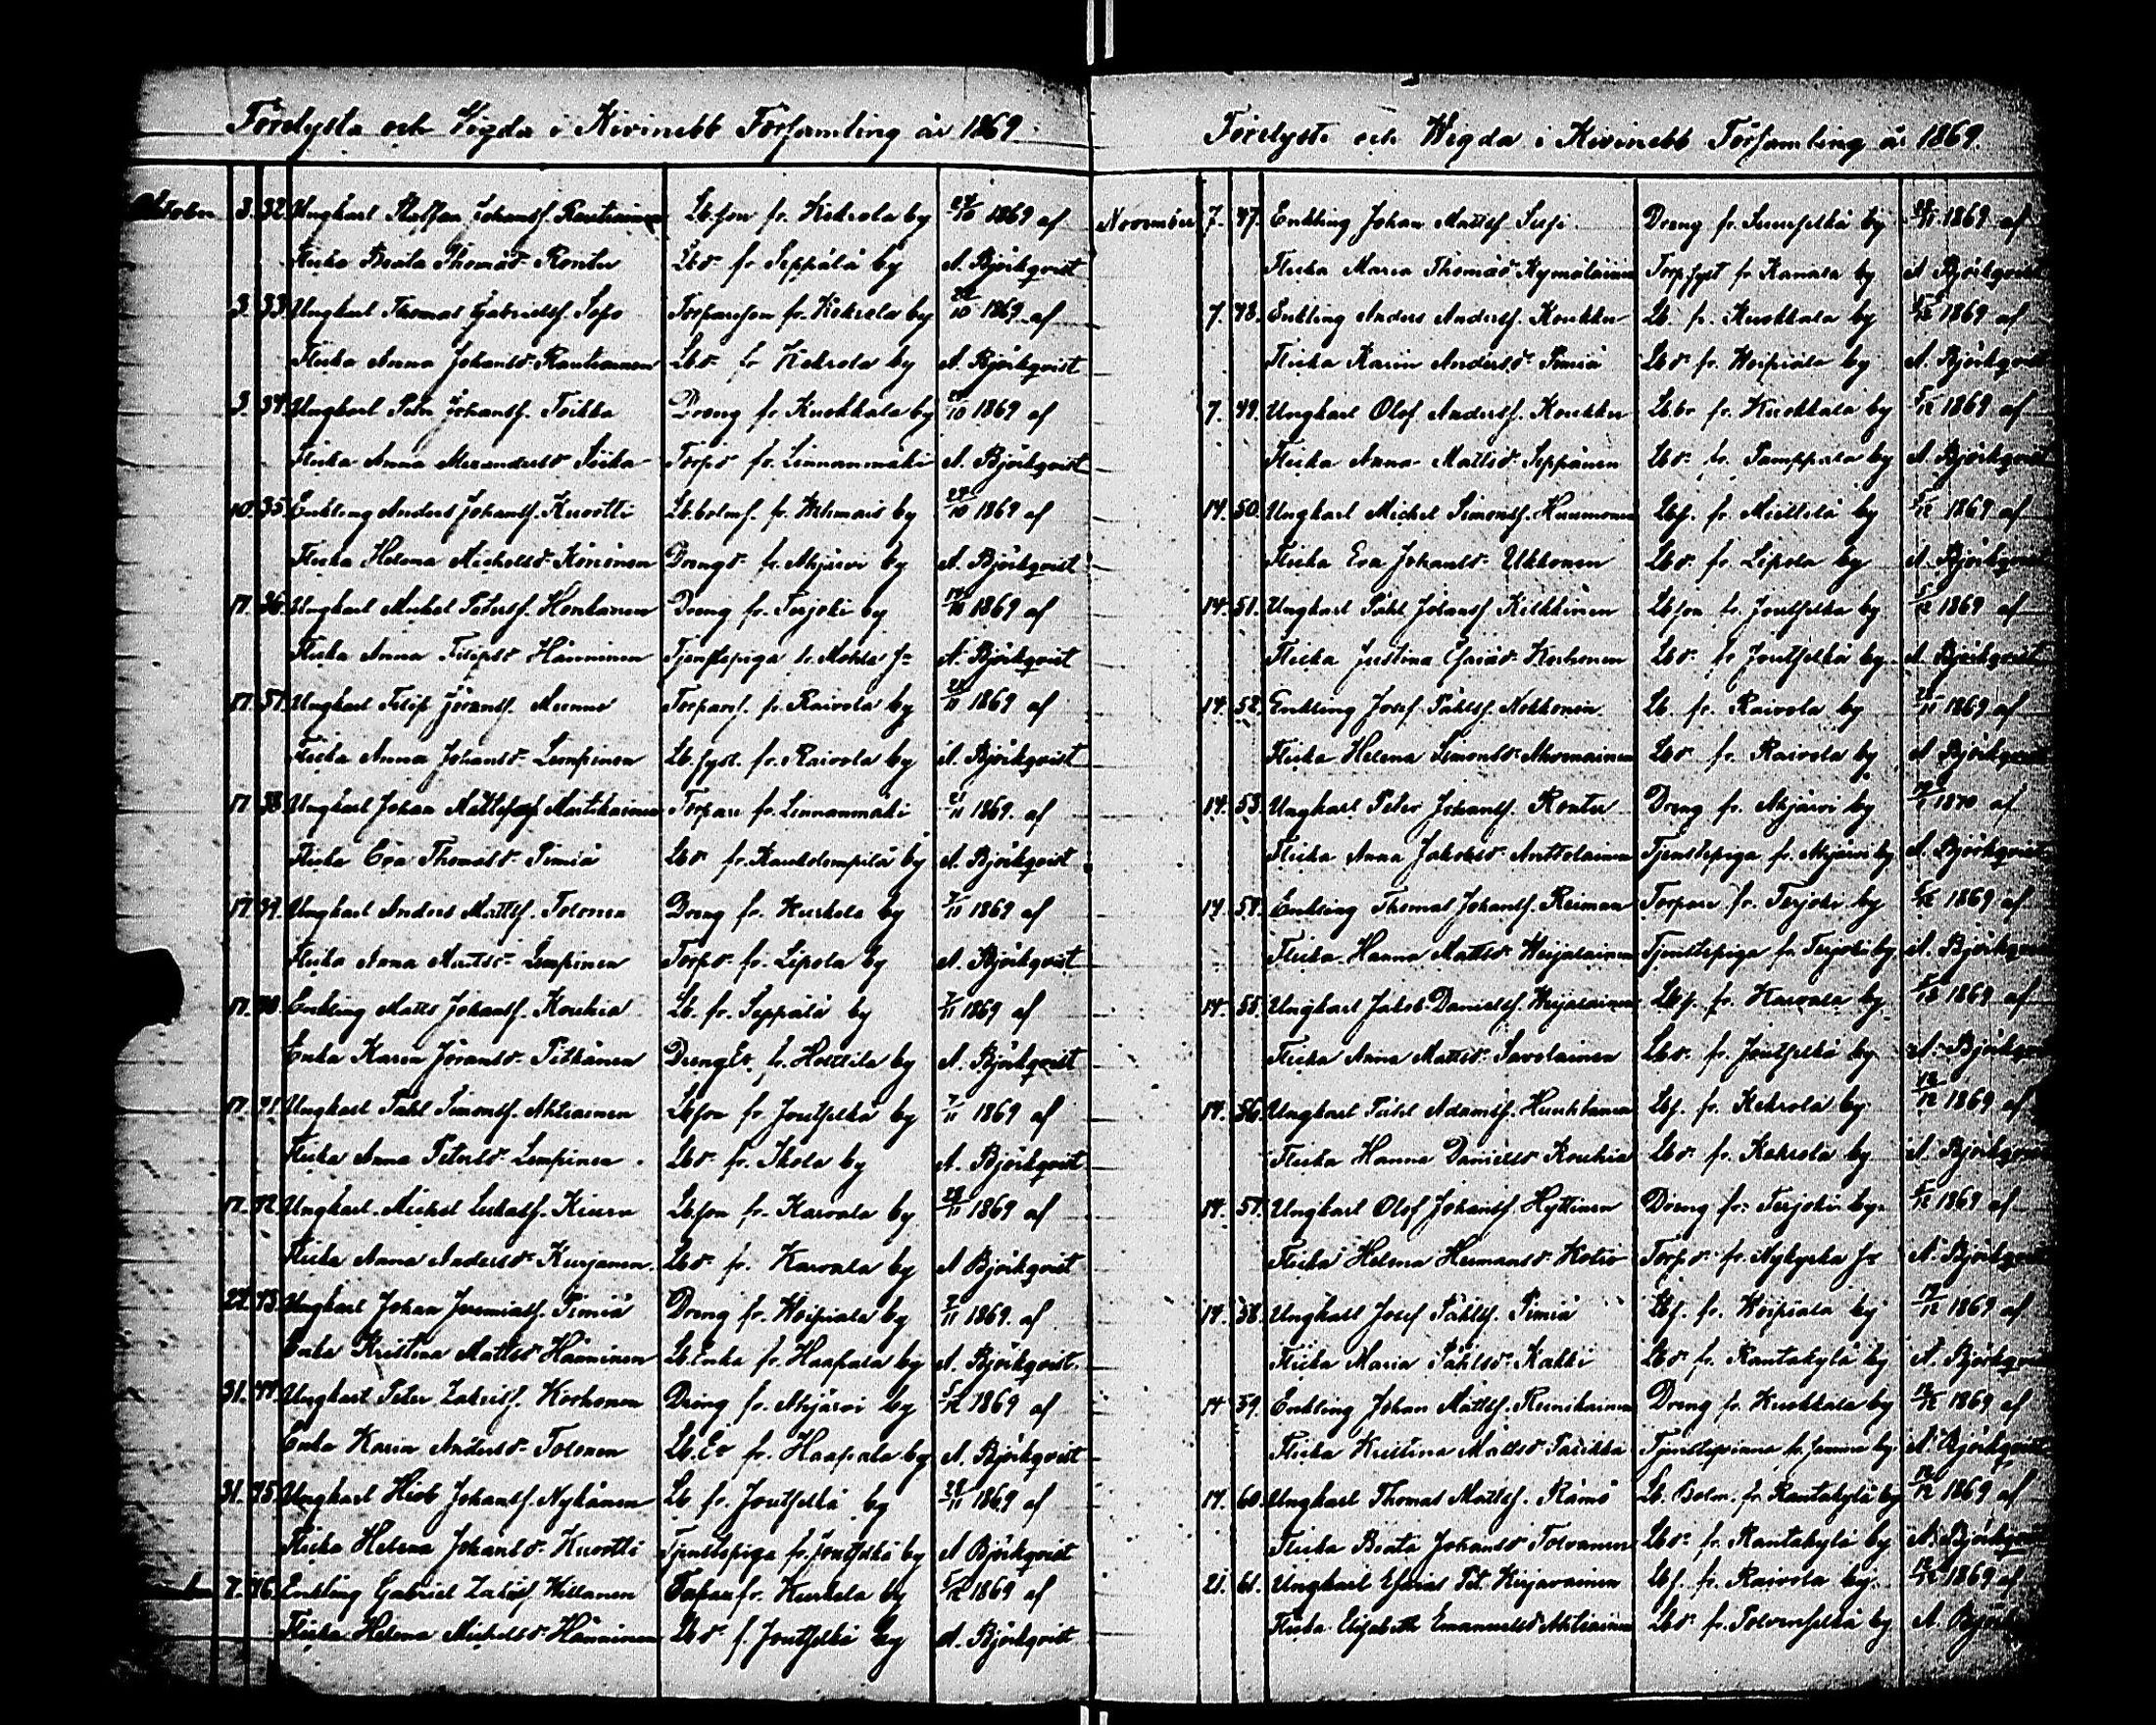 Förelysta och Vigda i Kivinebb Församling år 1869
Oktober 3. 32. Ungkarl Staffan Johansf. Rautiainen Lb.son fr. Kekrola by 24/10 1869 af
Flicka Beata Thomasd. Rontu Lbd. fr. Seppälä by A. Björkqvist
3. 33. Ungkarl Thomas Gabrielsf. Torpareson fr. Kekrola by 1869 af
Flicka Anna Johansd. Rautiainen Lbd. fr Kekrola by A. Björkqvist
3. 34. Ungkarl Petr Johansf. Toikka Dreng fr. Kuokkala by 1869 af
Flicka Anna Torpd. fr. Linnanmäki A. Björkqvist
10. 35. Enkling Anders Johansf. Kuortti fr. by 24/10 1869 af
Flicka Helena Michelsd. Könönen Drengd. fr. Ahjärvi by A. Björkqvist
17. 36. Ungkarl Michel Petersf. Honkanen Dreng fr. Terjoki by 1869 af
Flicka Anna Filipsd. Hänninen Tjenstepiga fr. Mohla A. Björkqvist
17. 37. Ungkarl Filip Göransf. Torpares. fr. Raivola by 1869 af
Flicka Anna Johansd. Lempinen Lb. fr. Raivola by A. Björkqvist
17. 38. Ungkarl Johan Mattsf. Martikainen Torpare fr. Linnanmäki 1869. af
Flicka Eva Thomasd. Pimiä Lbd fr. Kaukolempilä by A. Björkqvist
17. 39. Ungkarl Anders Mattsf. Tolonen Dreng fr. Kurkela by 7/11 1869 af
Flicka Anna Mattsd. Lempinen Torpd. fr. Lipola by A. Björkqvist
17. 40. Enkling Matts Johansf. Koukia Lb. fr. Seppälä by 7/11 1869 af
Enka Karin Göransd. Pitkänen fr. Hottila by A. Björkqvist
17. 41. Ungkarl Påhl Simonsf. Ahtiainen Lbson fr. Joutselkä by 7/11 1869 af
Flicka Anna Petersd. Lempinen. Lbd. fr. Ikola by A. Björkqvist
17. 42. Ungkarl Michel Lukasf. Kiuru Lbson fr. Karvala by 1869 af
Flicka Anna Andersd. Kurjanen. Lbd. fr. Karvala by A Björkqvist
24. 43. Ungkarl Johan Jeremiasf. Pimiä Dreng fr. Voipiala by 7/11 1869. af
Enka Kristina Mattsd. Hänninen Lb.Enka fr. Haapala by A. Björkqvist.
31. 44. Ungkarl Peter Zakrisf. Korhonen Dreng fr. Ahjärvi by 5/12 1869 af
Enka Karin Andersd. Tolonen Lb. fr. Haapala by A. Björkqvist
31. 45. Ungkarl Hiob Johansf. Nykänen Lb fr. Joutselkä by 28/11 1869 af
Flicka Helena Johansd. Kuortti Tjenstepiga fr. Joutselkä by A Björkqvist
7. 46. Enkling Gabriel Willanen Torpare fr. Kurkela by 5/12 1869 af
Flicka Helena Michelsd. Hänninen Lbd. f. Joutselkä by A. Björkqvist
Förelyste och Wigda i Kivinebb Församling år 1869.
November 7. 47. Enkling Johan Mattsf. Susi. Dreng fr. by 28/11 1869 af
Flicka Maria Thomasd. Kymäläinen fr Kanala by A Björkqvist
7. 48. Enkling Anders Andersf. Koukku Lb. fr. Kuokkala by 5/12 1869 af
Flicka Karin Andersd. Pimiä Lbd. fr. Woipiala by A. Björkqvist
7. 49. Ungkarl Olof Andersf. Koukku Lbbr fr. Kuokkala by 5/12 1869 af
Flicka Anna Mattsd. Seppänen Lbd. fr. Pamppala by A. Björkqvist
14. 50. Ungkarl Michel Simonsf. Huumonen Lbf. fr. Miettilä by 5/12 1869 af
Flicka Eva Johansd. Ukkonen Lbd. fr. Lipola by A. Björkqvist
14. 51. Ungkarl Påhl Johansf. Kilkkinen Lbson fr. Joutselkä by 5/12 1869 af
Flicka Justina Esaiad. Korhonen Lbd. fr Joutselkä by. A. Björkqvist
14. 52. Enkling Josef Påhlsf. Nokkonen. Lb. fr. Raivola by 28/11 1869 af
Flicka Helena Simonsd. Ahvenainen Lbd fr. Raivola by A Björkqvist
14. 53. Ungkarl Peter Johansf. Rontu Dreng fr. Ahjärvi by 1870 af
Flicka Anna Jakobsd. Anttolainen Tjenstepiga fr. Ahjärvi by A. Björkqvist
14. 54. Enkling Thomas Johansf. Reiman Torpare fr. Terjoki by 5/12 1869 af
Flicka Hanna Mattsd. Wirjalainen Tjenstepiga fr. Terjoki by A. Björkqvist
14. 55. Ungkarl Jakob Danielsf. Wirjalainen Lbf. fr. Karvala by. 1869 af
Flicka Anna Mattsd. Savolainen Lbd. fr. Joutselkä by A. Björkqvist
14. 56. Ungkarl Påhl Adamsf. Huuhtanen Lbf. fr. Kekrola by 12/12 1869 af
Flicka Hanna Danielsd Koukia Lbd. fr. Kekrola by A Björkqvist
14. 57. Ungkarl Olof Johansf. Hyttinen Dreng fr. Terjoki by. 5/12 1869 af
Flicka Helena Hermansd. Kotro Torpd. fr. Nykyrka A. Björkqvist
14. 58. Ungkarl Josef Påhlsf. Pimiä Lbf. fr. Woipiala by 1869 af
Flicka Maria Påhlsd. Kakki Lbd. fr. Rantakylä by A. Björkqvist
14 59. Enkling Johan Mattsf. Reinikainen Dreng fr. Kuokkala by 12/12 1869 af
Flicka Kristina Mattsd Parikka fr. by. A. Björkqvist
14. 60. Ungkarl Thomas Mattsf. Rämö Lb. Bolm. fr. Rantakylä by 12/12 1869 af
Flicka Beata Johansd Tolvanen Lbd. fr. Rantakylä by A. Björkqvist
21. 61. Ungkarl Esaias Pet. Kirjavainen Lbf. fr. Raivola by. 12/12 1869 af
Flicka Elisabeth Emanuelsd Ahtiainen Lbd. fr. Polvenselkä by A.